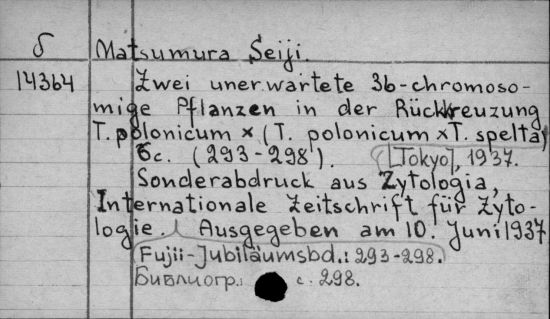 δ Matsumura Seiji.
14364 Zwei unerwartete 36-chromoso-
mige Pflanzen in der Rückkreuzung
T. polonicum × (T. polonicum × T. spelta)
6 c. (293-298). [Tokyo], 1937.
Sonderabdruck aus Zytologia,
Internationale Zeitschrift für Zyto-
logie. Ausgegeben am 10. Juni 1937
Fujii-Jubiläumsbd.: 293-298.
Библиогр.: с. 298.